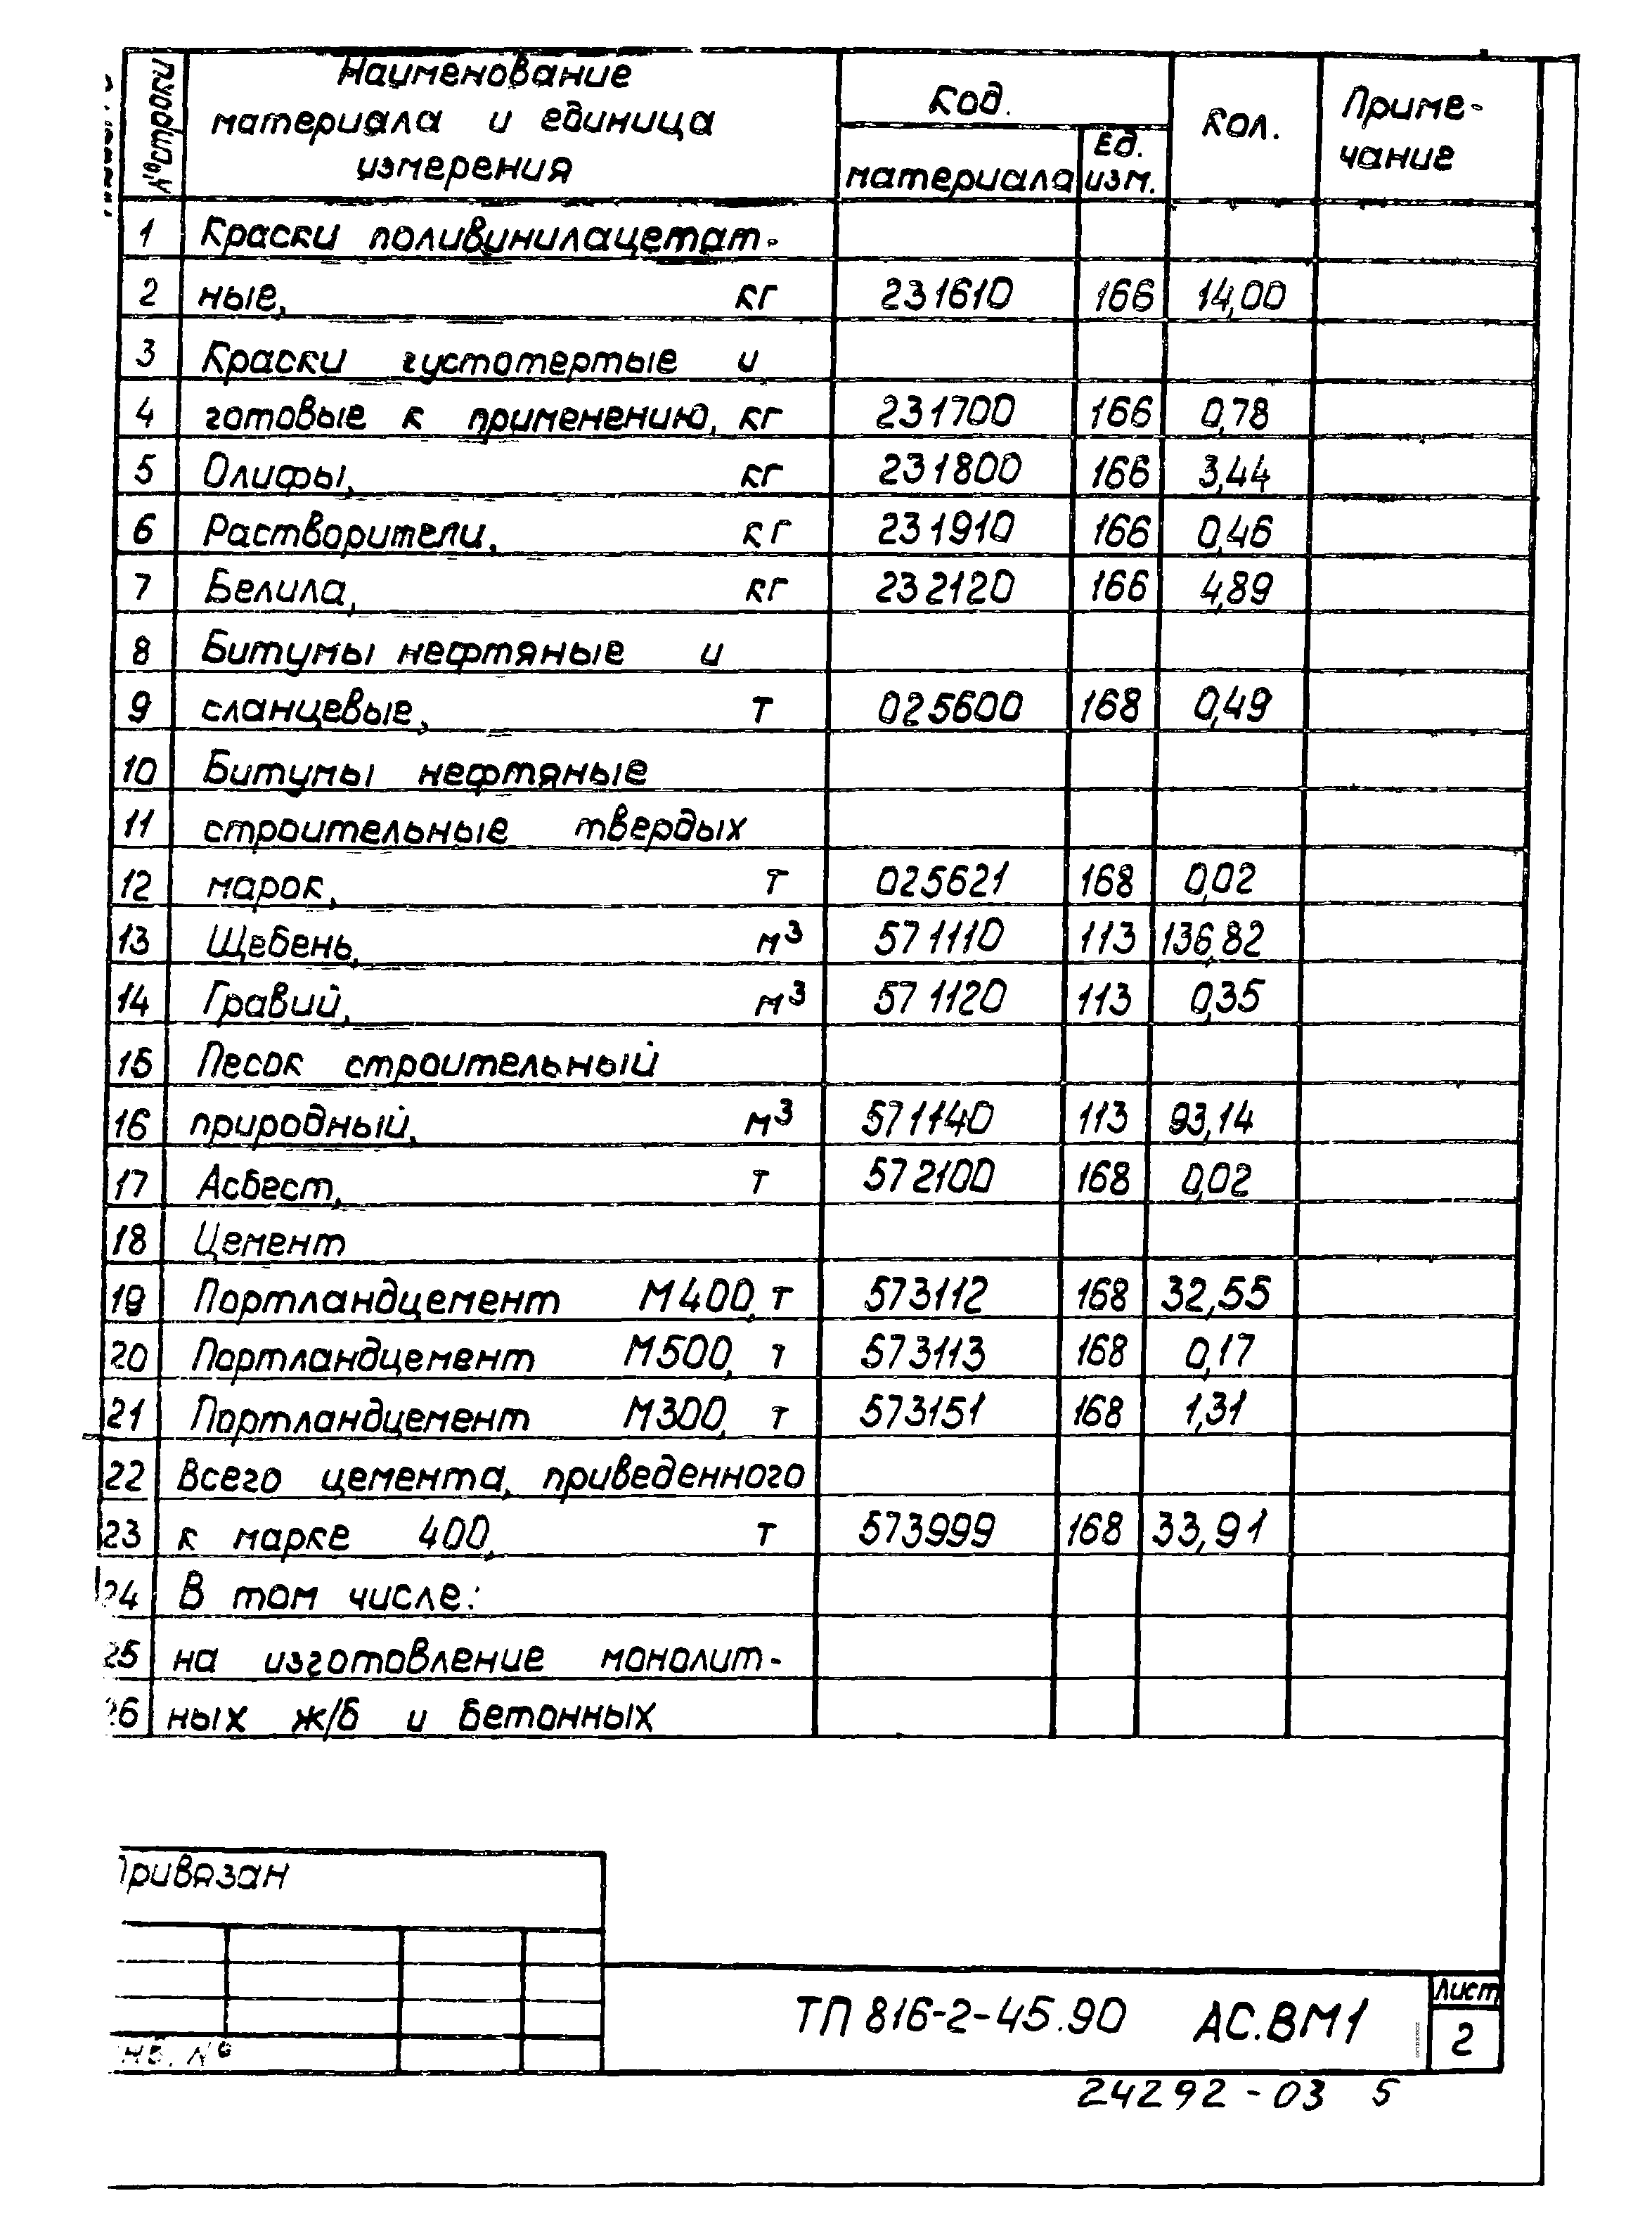 № строки
Наименование
материала и единица
измерения
Код.
материала
Ед.
изм.
Кол.
Приме-
чание
1 Краски поливинилацетат-
2 ные, кг 231610 166 14,00
3 Краски густотертые и
4 готовые к применению, кг 231700 166 0,78
5 Олифы, кг 231800 166 3,44
6 Растворители, кг 231910 166 0,46
7 Белила, кг 232120 166 4,89
8 Битумы нефтяные и
9 сланцевые, т 025600 168 0,49
10 Битумы нефтяные
11 строительные твердых
12 марок, т 025621 168 0,02
13 Щебень, м³ 571110 113 136,82
14 Гравий, м³ 571120 113 0,35
15 Песок строительный
16 природный, м³ 571140 113 93,14
17 Асбест, т 572100 168 0,02
18 Цемент
19 Портландцемент М400, т 573112 168 32,55
20 Портландцемент М500, т 573113 168 0,17
21 Портландцемент М300, т 573151 168 1,31
22 Всего цемента, приведенного
23 к марке 400, т 573999 168 33,91
24 В том числе:
25 на изготовление монолит-
26 ных ж/б и бетонных
Привязан
Инв. №
ТП 816-2-45.90 АС.ВМ1
Лист
2
24292-03 5